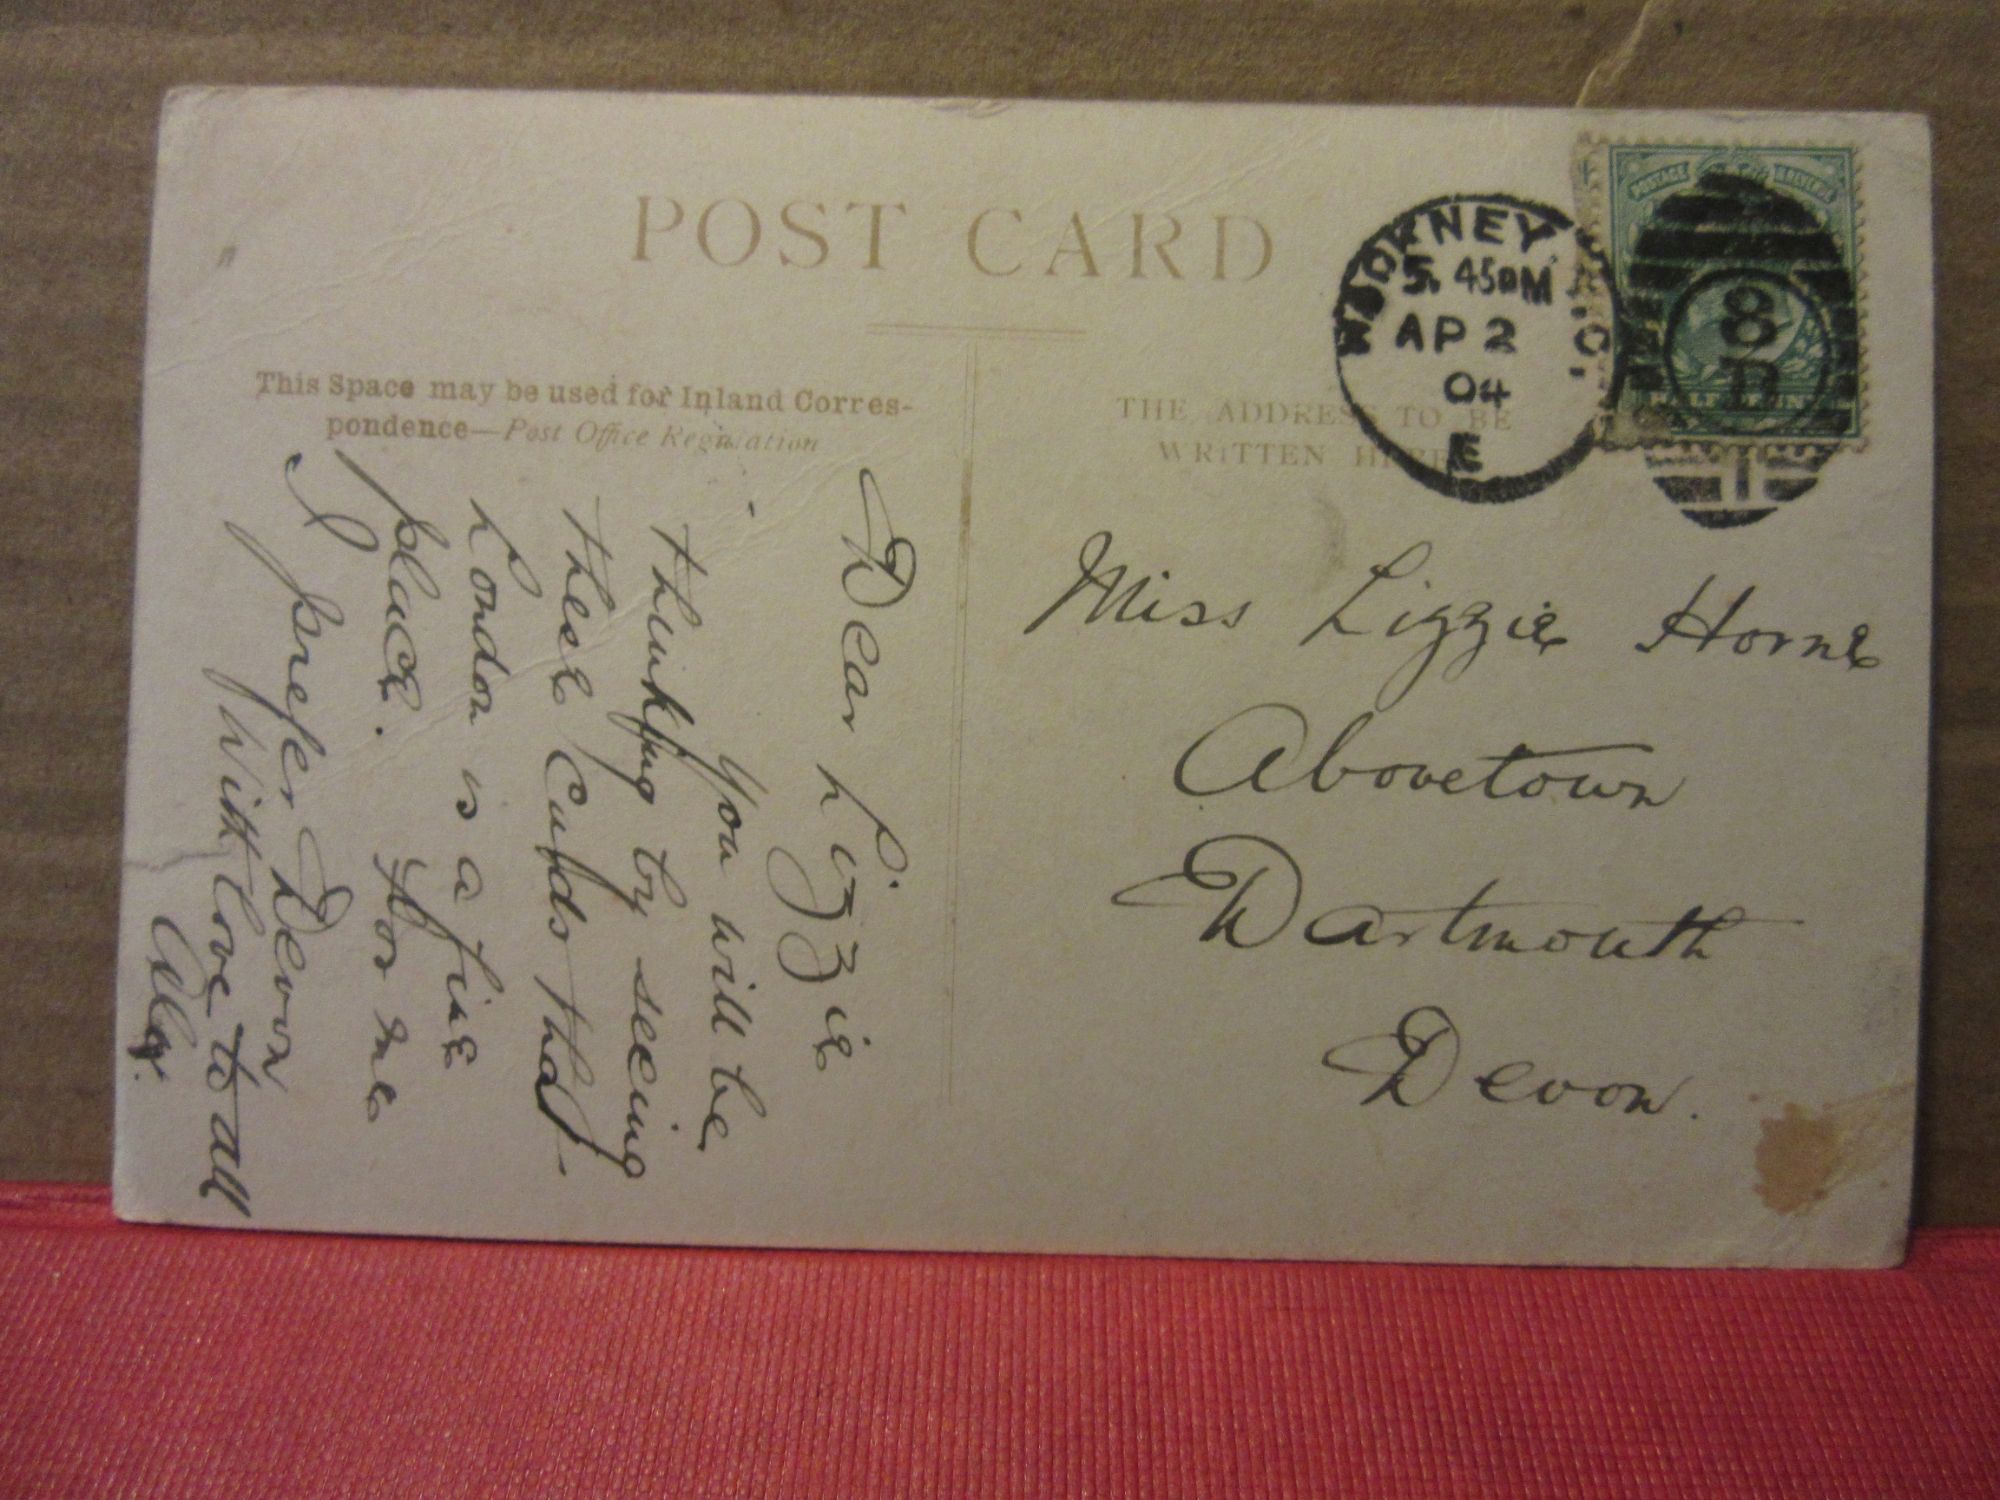 POST CARD
This Space may be used for Inland Corres-
pondence—Post Office Regulation
THE ADDRESS TO BE
WRITTEN HERE
5.45PM
AP 2
04
E
POSTAGE
& REVENUE
8
D
HALFPENNY
Dear Lizzie
You will be
thinking by seeing
these Cards that
London is a fine
place. For me
I prefer Devon
With love to all
Alex.
Miss Lizzie Horne
Abovetown
Dartmouth
Devon.